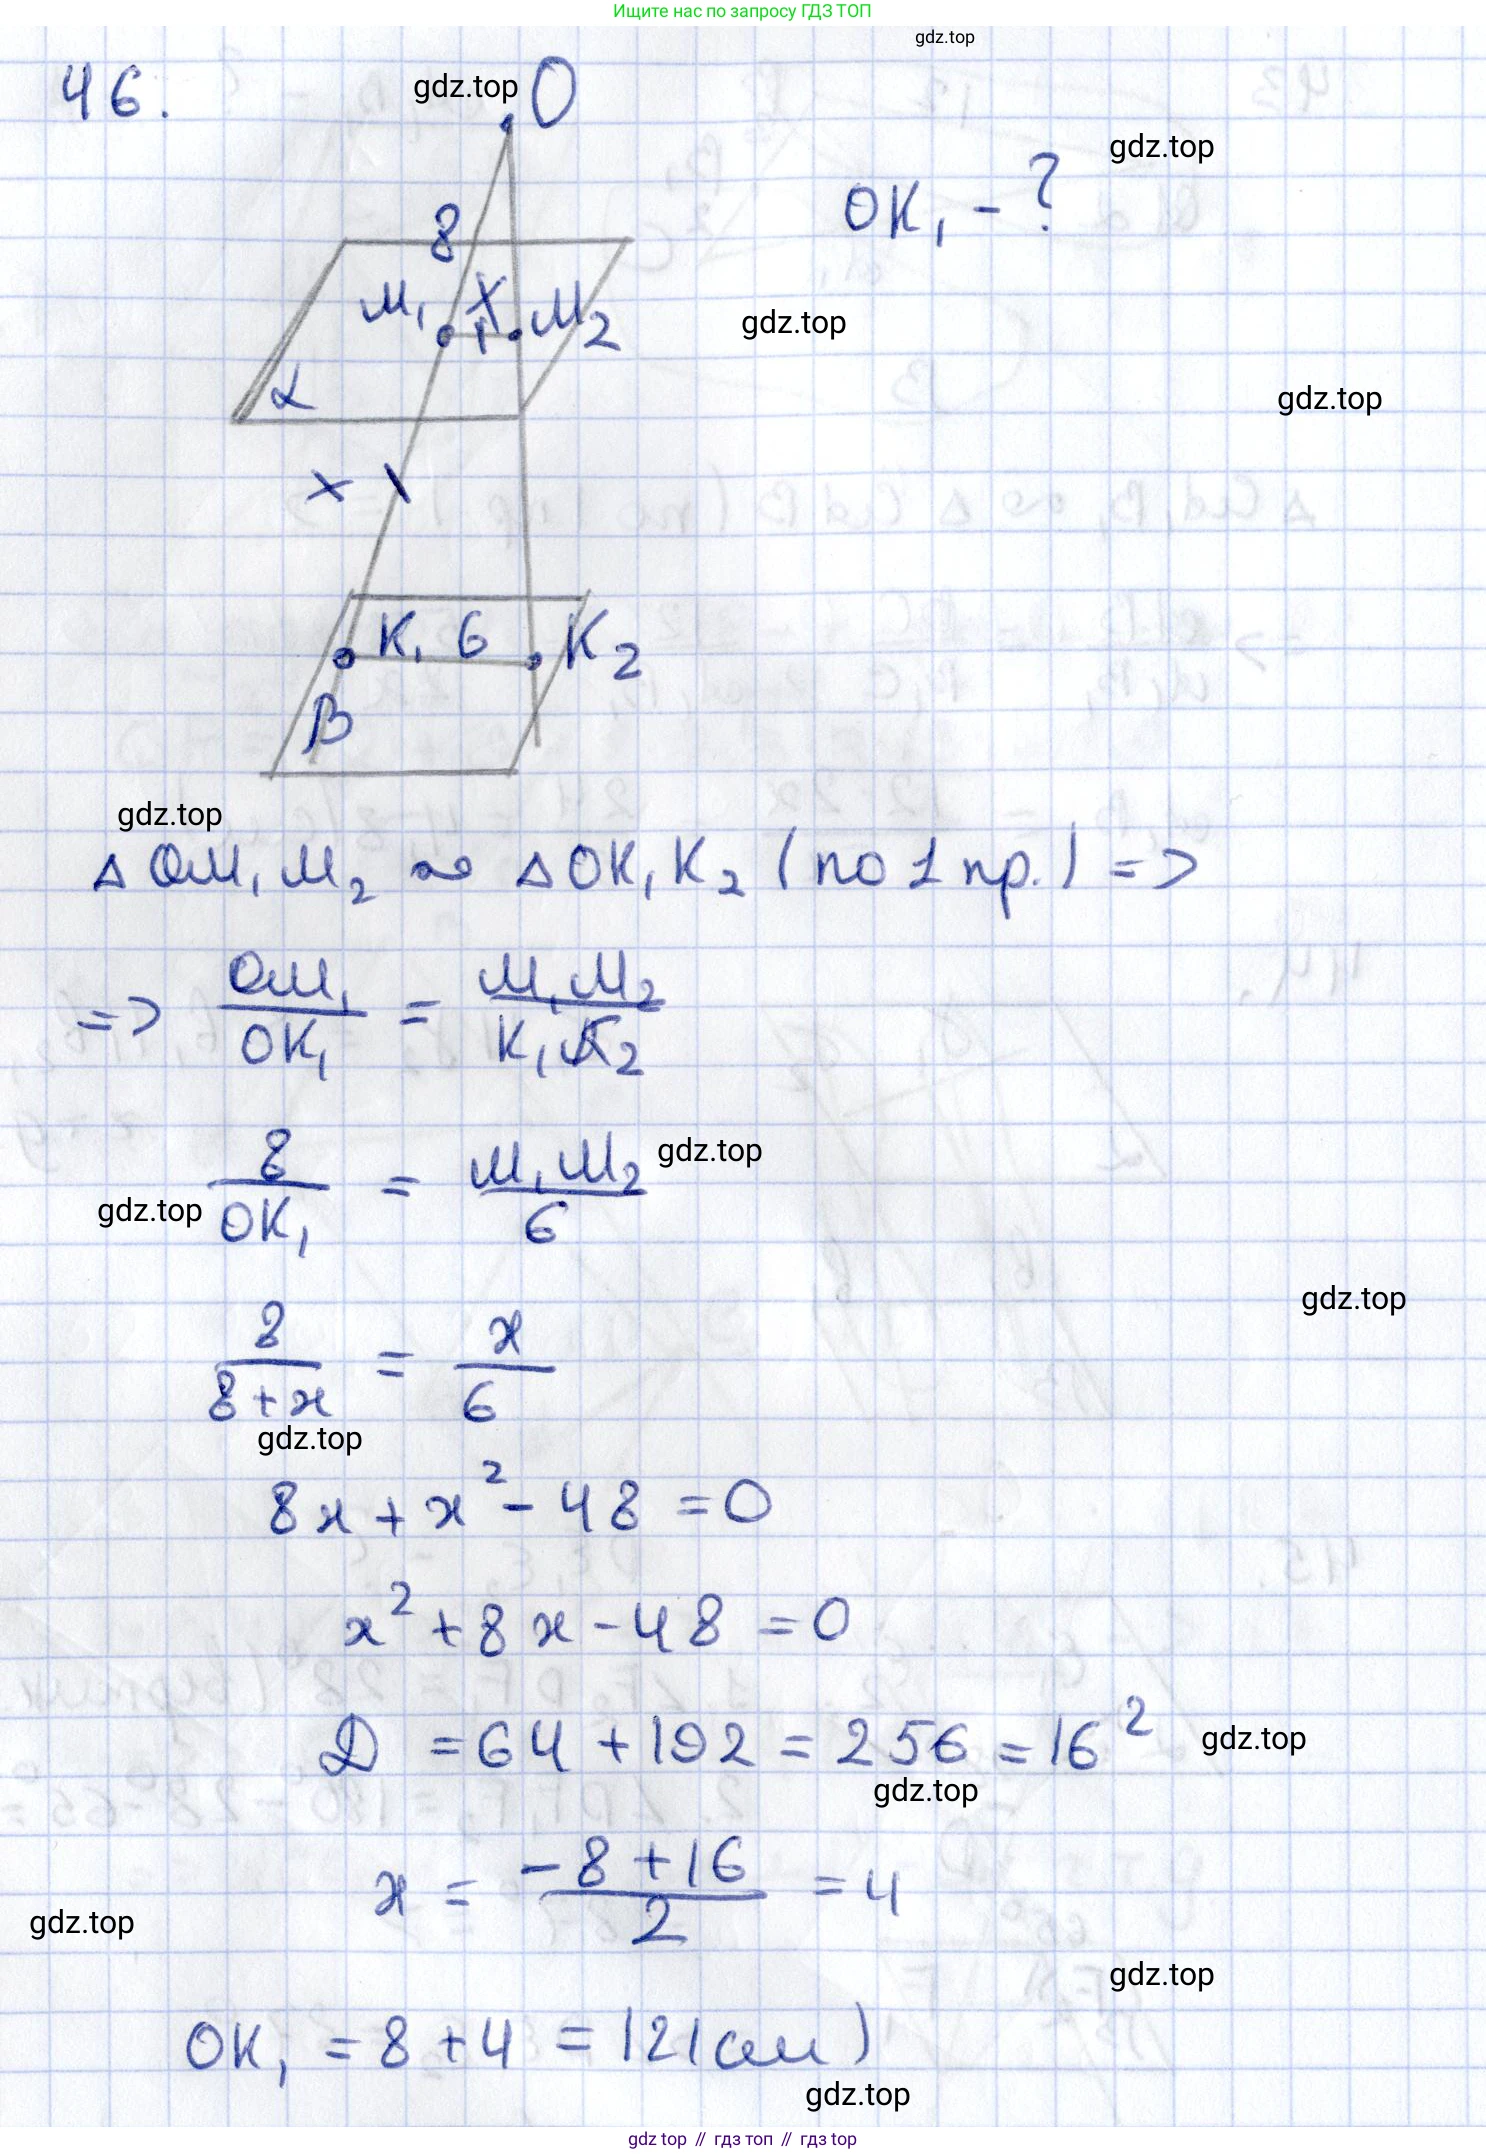 Ищите нас по запросу ГДЗ ТОП
gdz.top
46.
gdz.top
O
gdz.top
OK₁ - ?
8
M₁
x
M₂
gdz.top
α
gdz.top
x
K₁
6
K₂
β
gdz.top
△ OM₁M₂ ∾ △ OK₁K₂ (по 1 пр.) =>
=> OM₁/OK₁ = M₁M₂/K₁K₂
8/OK₁ = M₁M₂/6
gdz.top
gdz.top
gdz.top
8/(8+x) = x/6
gdz.top
8x + x² - 48 = 0
x² + 8x - 48 = 0
D = 64 + 192 = 256 = 16²
gdz.top
gdz.top
x = (-8 + 16)/2 = 4
gdz.top
gdz.top
OK₁ = 8 + 4 = 12 (см)
gdz.top
gdz top // гдз топ // гдз top